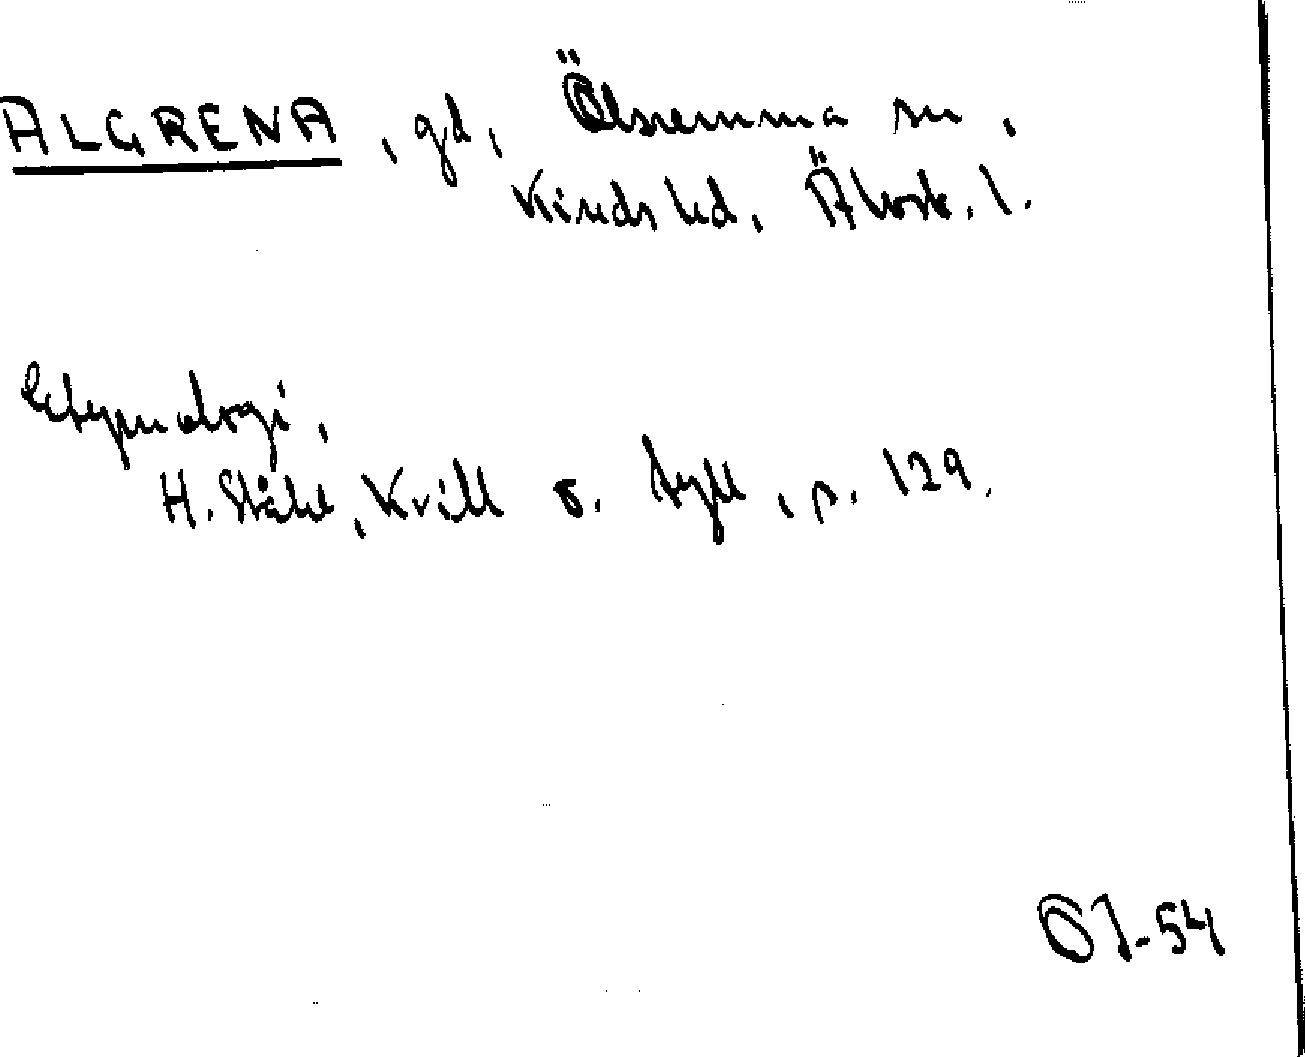 ALGRENA, gd, Ölsremma sn,
Kinds hd, Älvsb. l.
Etymologi,
H. Ståhl, Kvill o. tyll, p. 129.
ÖJ-54